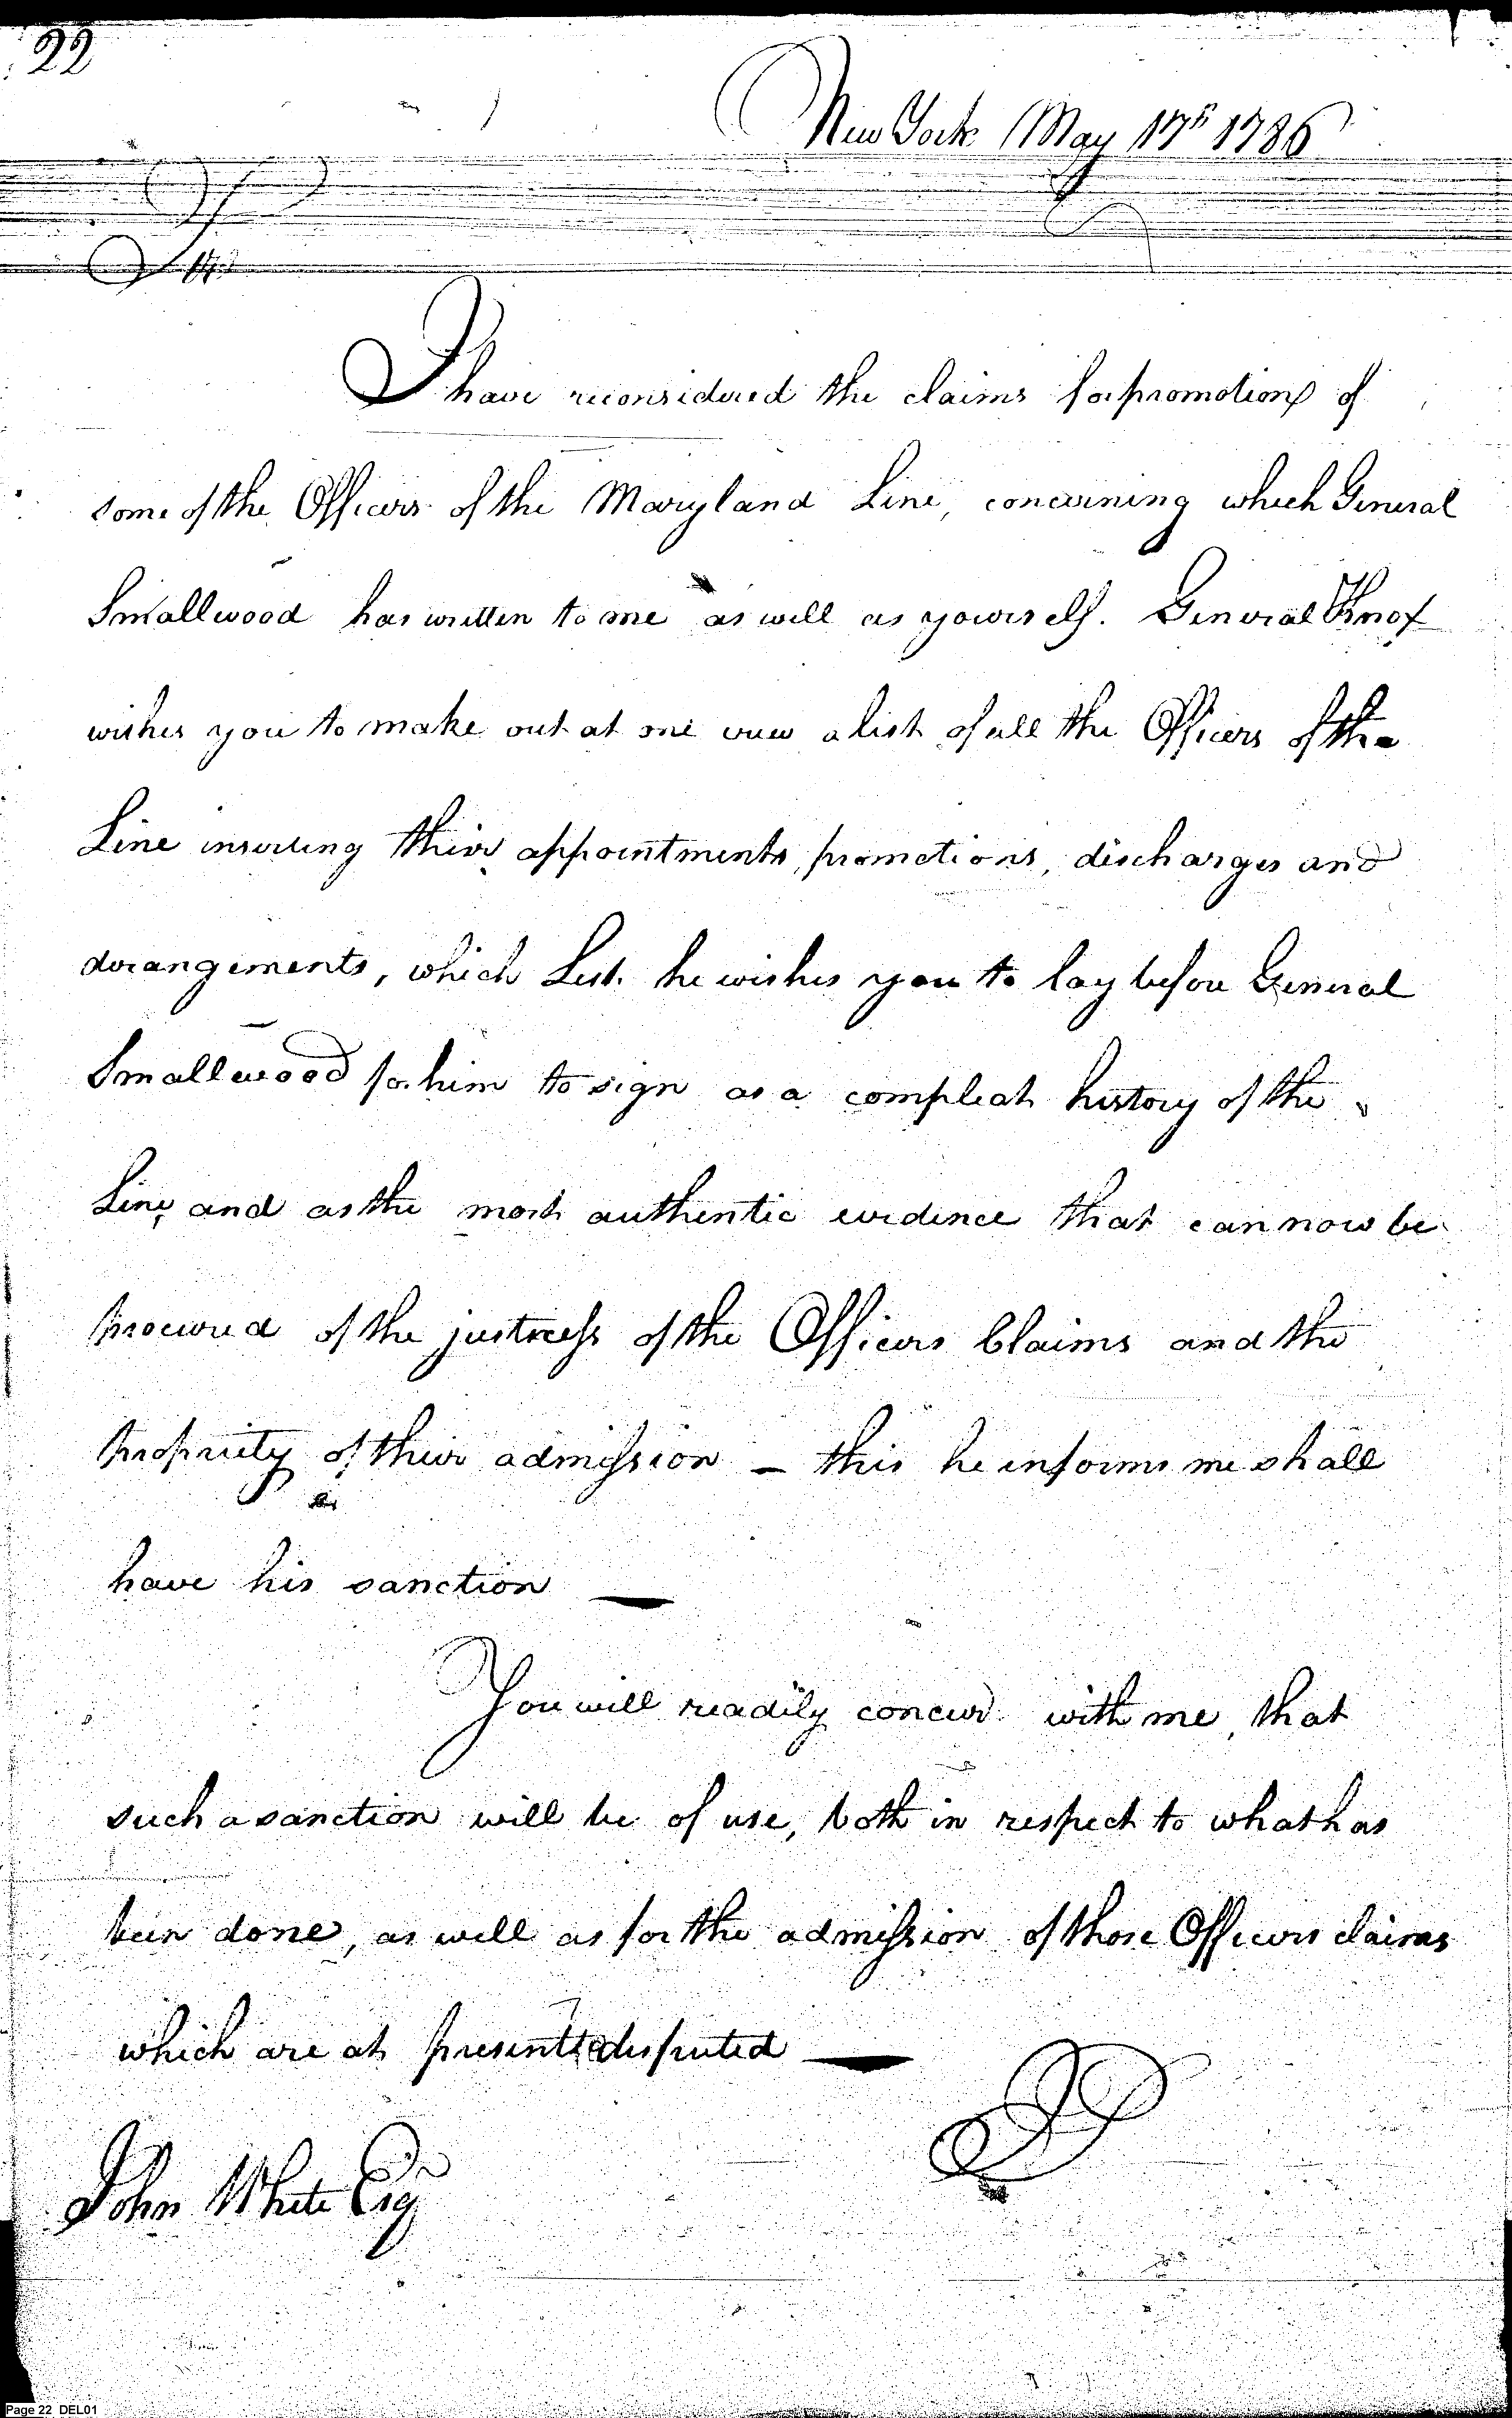 22
New York May 17th 1786
Sir
I have reconsidered the claims for promotions of
some of the Officers of the Maryland Line, concerning which General
Smallwood has written to me as well as yourself. General Knox
wishes you to make out at one view a list of all the Officers of the
Line inserting their appointments, promotions, discharges and
derangements, which List he wishes you to lay before General
Smallwood for him to sign as a compleat history of the
Line and as the most authentic evidence that can now be
procured of the justness of the Officers Claims and the
propriety of their admission — this he informs me shall
have his sanction —
You will readily concur with me, that
such a sanction will be of use, both in respect to what has
been done, as well as for the admission of those Officers claims
which are at present disputed —
John White Esq
Page 22 DEL01